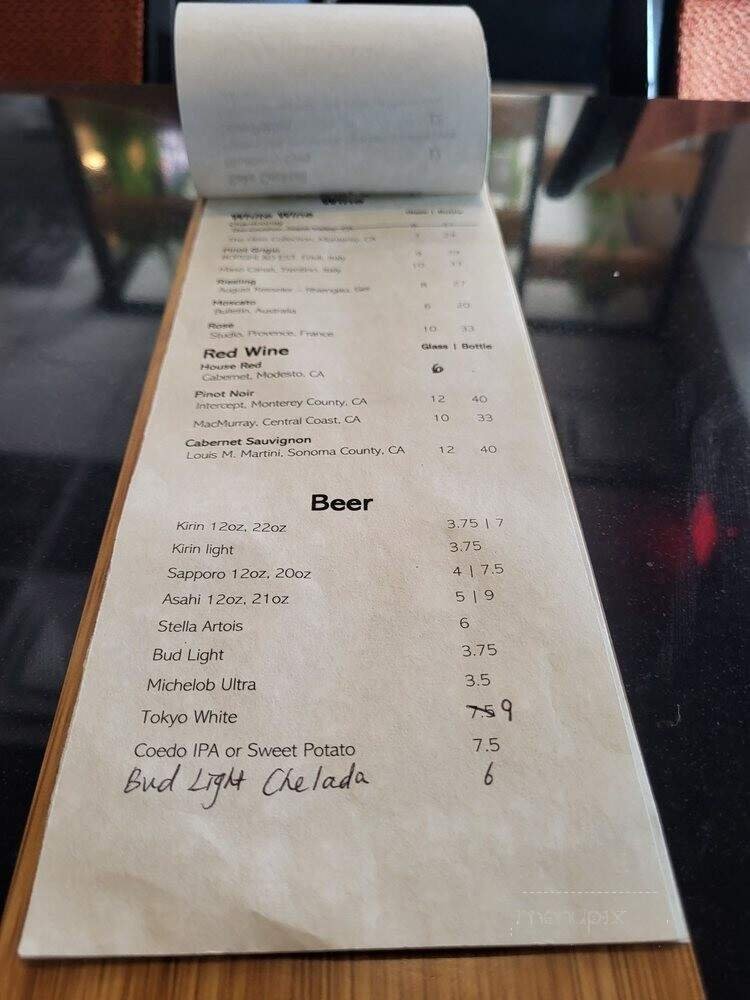 Wine
White Wine
Glass | Bottle
Chardonnay
Pinot Grigio
Italy
Riesling
8 27
Moscato
Bulletin, Australia
6 20
Rose
Studio, Provence, France
10 33
Red Wine
Glass | Bottle
House Red
Cabernet, Modesto, CA
6
Pinot Noir
Intercept, Monterey County, CA
12 40
MacMurray, Central Coast, CA
10 33
Cabernet Sauvignon
Louis M. Martini, Sonoma County, CA
12 40
Beer
Kirin 12oz, 22oz 3.75 | 7
Kirin light 3.75
Sapporo 12oz, 20oz 4 | 7.5
Asahi 12oz, 21oz 5 | 9
Stella Artois 6
Bud Light 3.75
Michelob Ultra 3.5
Tokyo White 7.5 9
Coedo IPA or Sweet Potato 7.5
Bud Light Chelada 6
menupix